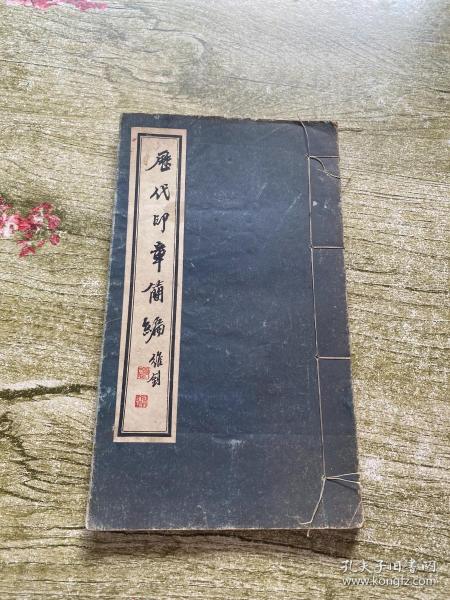 歷代印章簡編
雄剑
孔夫子旧书网
www.kongfz.com